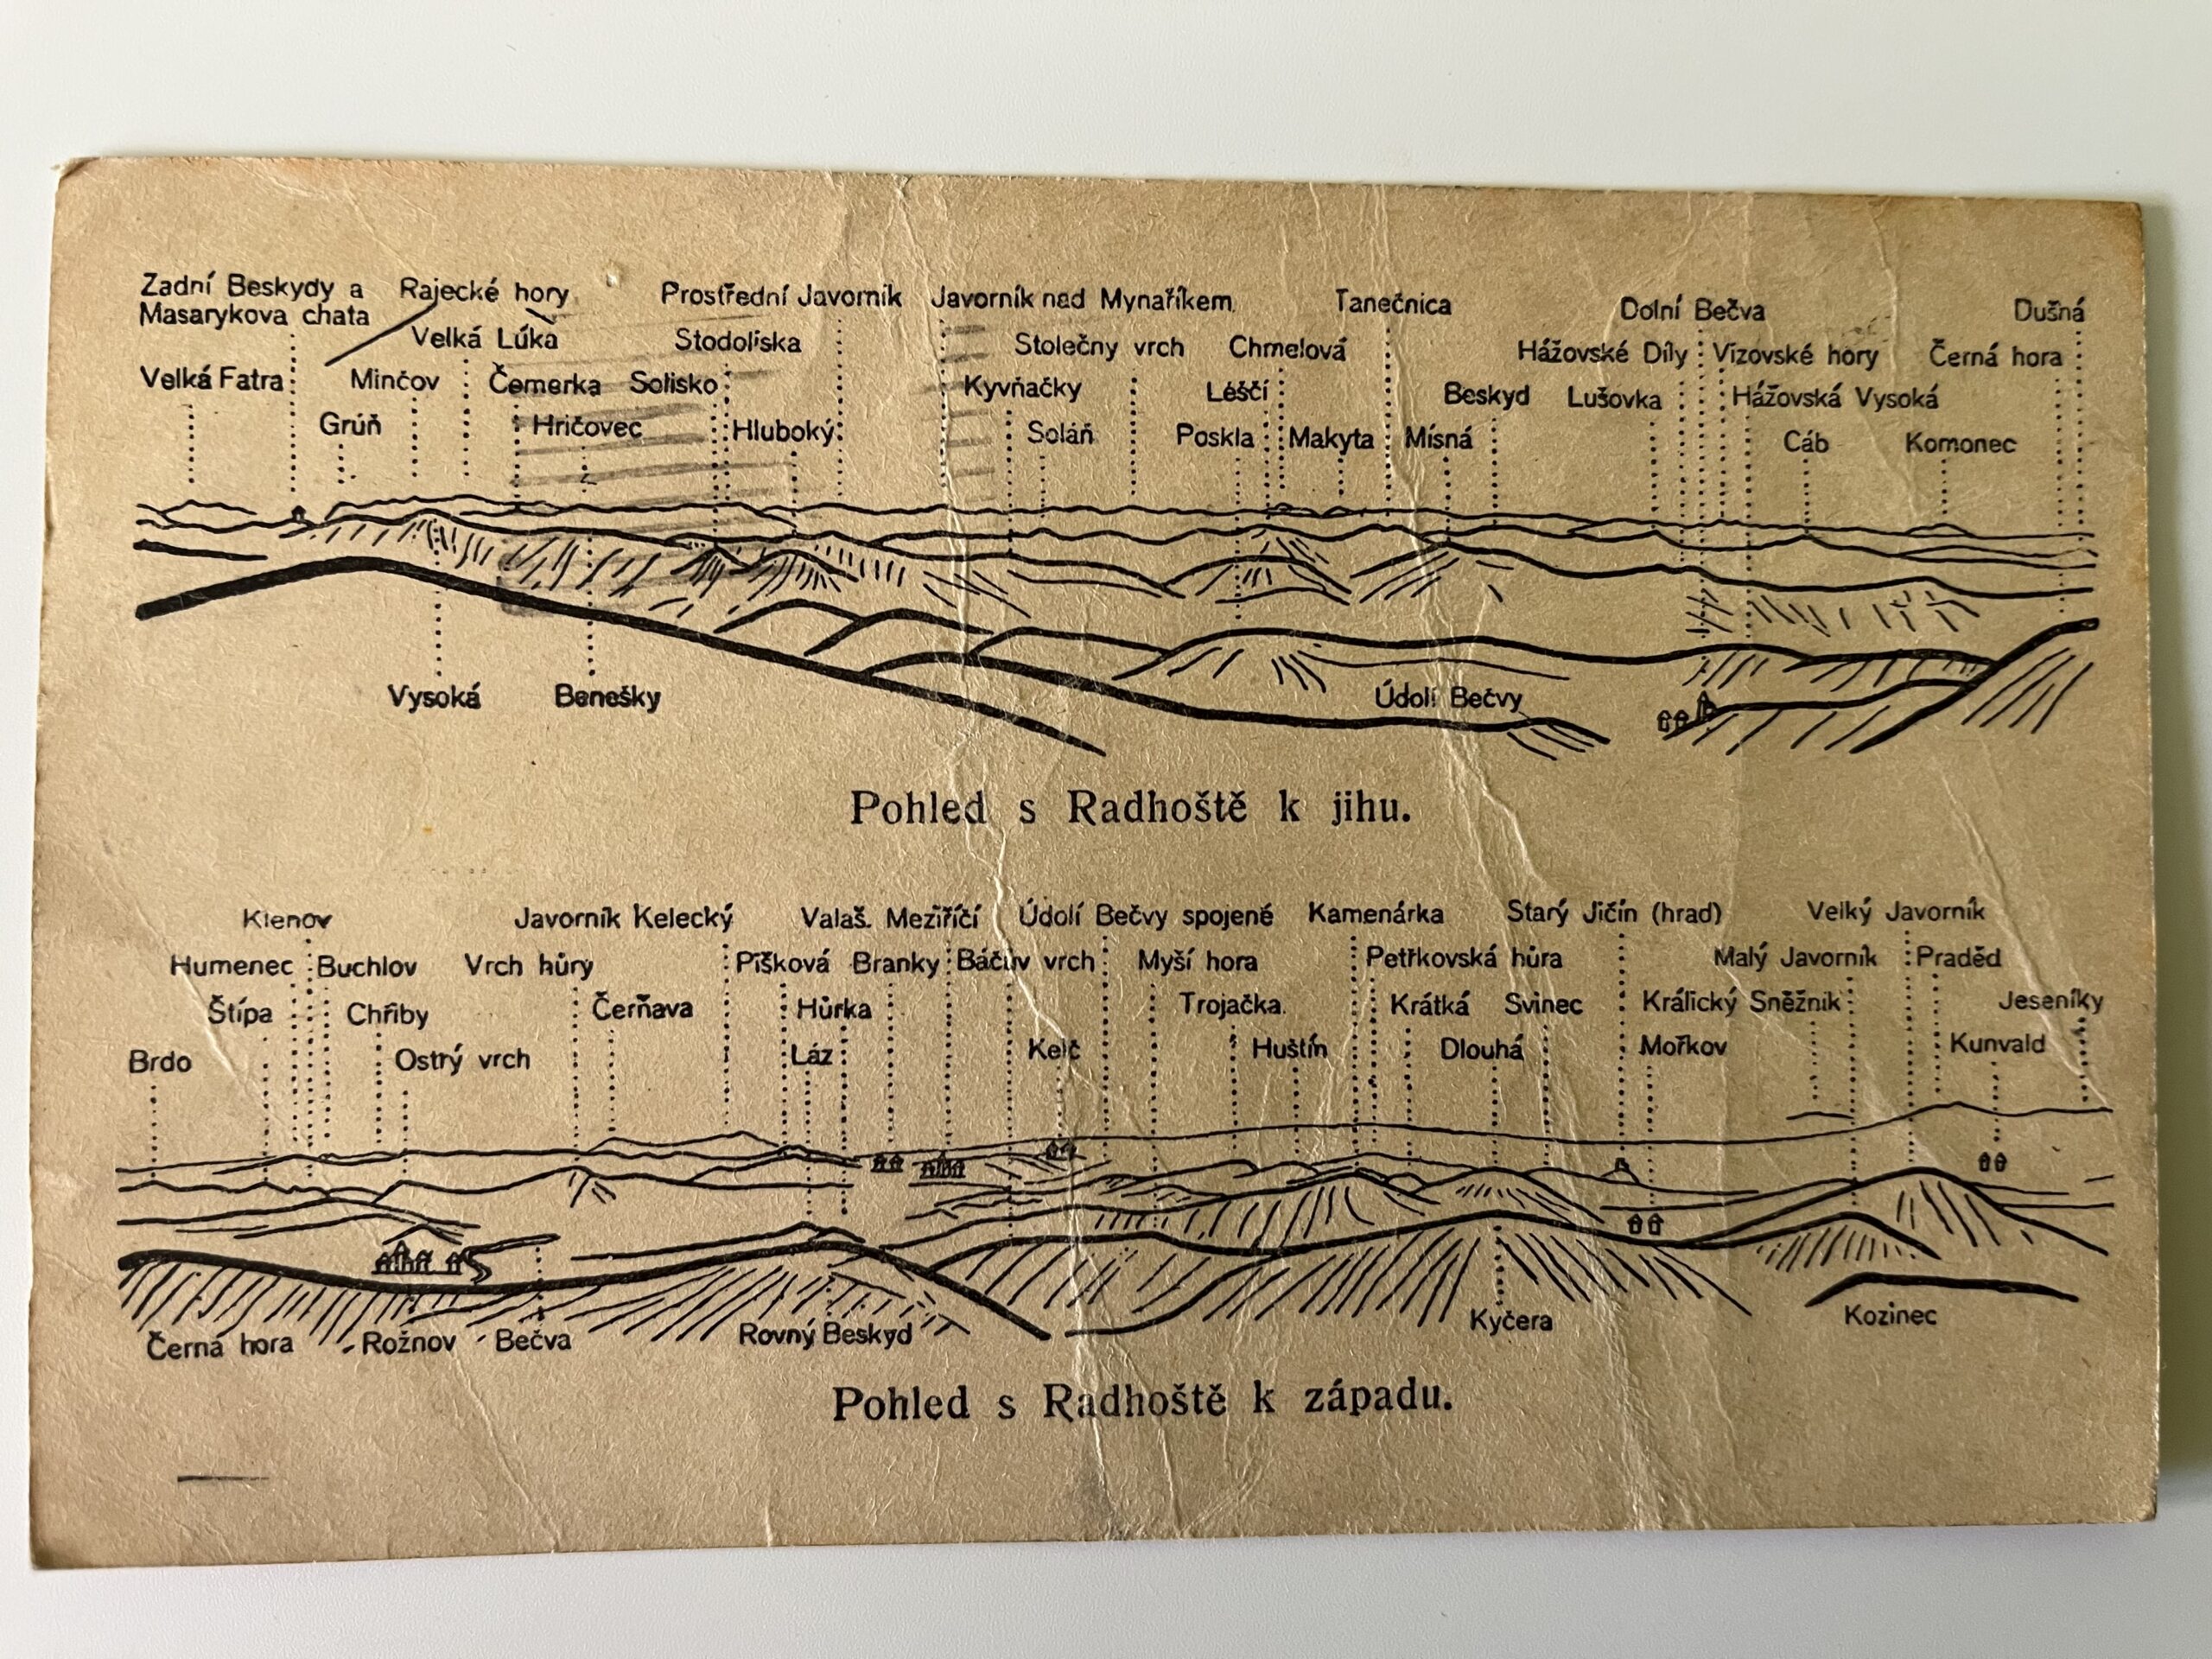 Zadní Beskydy a Rajecké hory Prostřední Javorník Javorník nad Mynaříkem Tanečnica Dolní Bečva Dušná
Masarykova chata Velká Lúka Stodoliska Stolečny vrch Chmelová Hážovské Díly Vizovské hory Černá hora
Velká Fatra Minčov Čemerka Solisko Kyvňačky Léščí Beskyd Lušovka Hážovská Vysoká
Grúň Hričovec Hluboký Soláň Poskla Makyta Mísná Cáb Komonec
Vysoká Benešky Údolí Bečvy
Pohled s Radhoště k jihu.
Klenov Javorník Kelecký Valaš. Meziříčí Údolí Bečvy spojené Kamenárka Starý Jičín (hrad) Velký Javorník
Humenec Buchlov Vrch hůry Píšková Branky Báčův vrch Myší hora Petřkovská hůra Malý Javorník Praděd
Štípa Chřiby Čerňava Hůrka Trojačka Krátká Svinec Králický Sněžník Jeseníky
Brdo Ostrý vrch Láz Kelč Huštín Dlouhá Mořkov Kunvald
Černá hora Rožnov Bečva Rovný Beskyd Kyčera Kozinec
Pohled s Radhoště k západu.